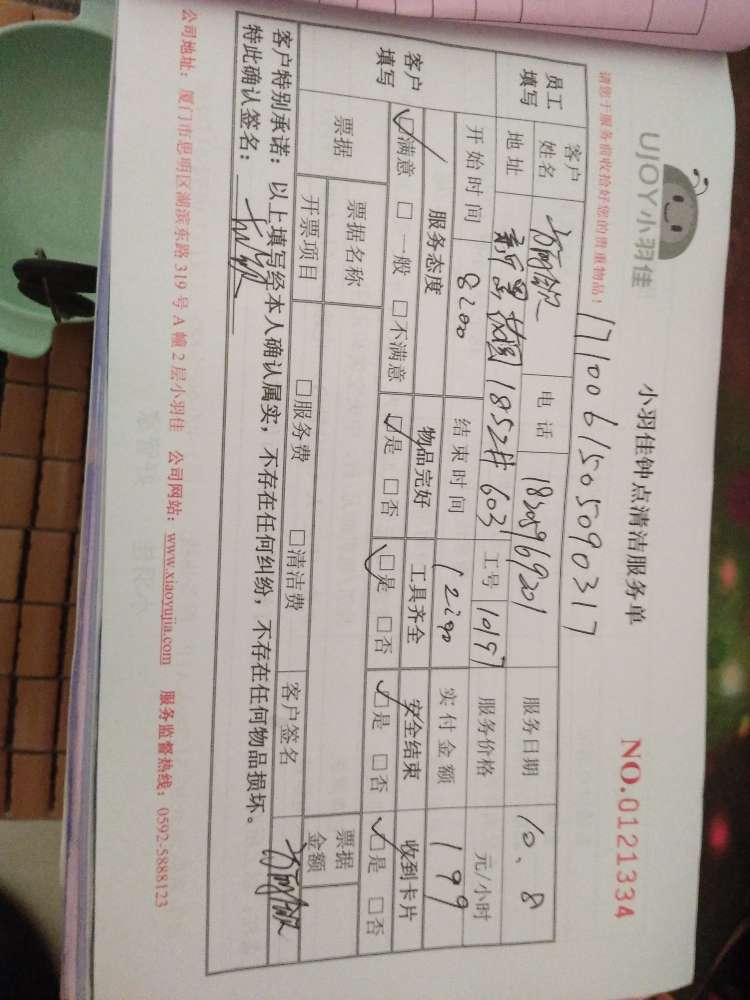 UJOY小羽佳
小羽佳钟点清洁服务单
NO.0121334
请您于服务前收拾好您的贵重物品！
1710061505090317
员工填写
客户姓名
电话
服务日期 10、8
地址 1852# 603
工号 10197
服务价格 元/小时
开始时间 8:00
结束时间 12:00
实付金额 199
客户填写
服务态度 物品完好 工具齐全 安全结束 收到卡片
☑满意 □一般 □不满意 ☑是 □否 ☑是 □否 ☑是 □否 ☑是 □否
票据
票据名称
票据金额
开票项目 □服务费 □清洁费
客户签名
客户特别承诺：以上填写经本人确认属实，不存在任何纠纷，不存在任何物品损坏。
特此确认签名：
公司地址：厦门市思明区湖滨东路319号A幢2层小羽佳 公司网站：www.xiaoyujia.com 服务监督热线：0592-5888123